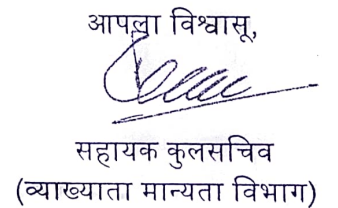 आपला विश्वासू,
सहायक कुलसचिव
(व्याख्याता मान्यता विभाग)